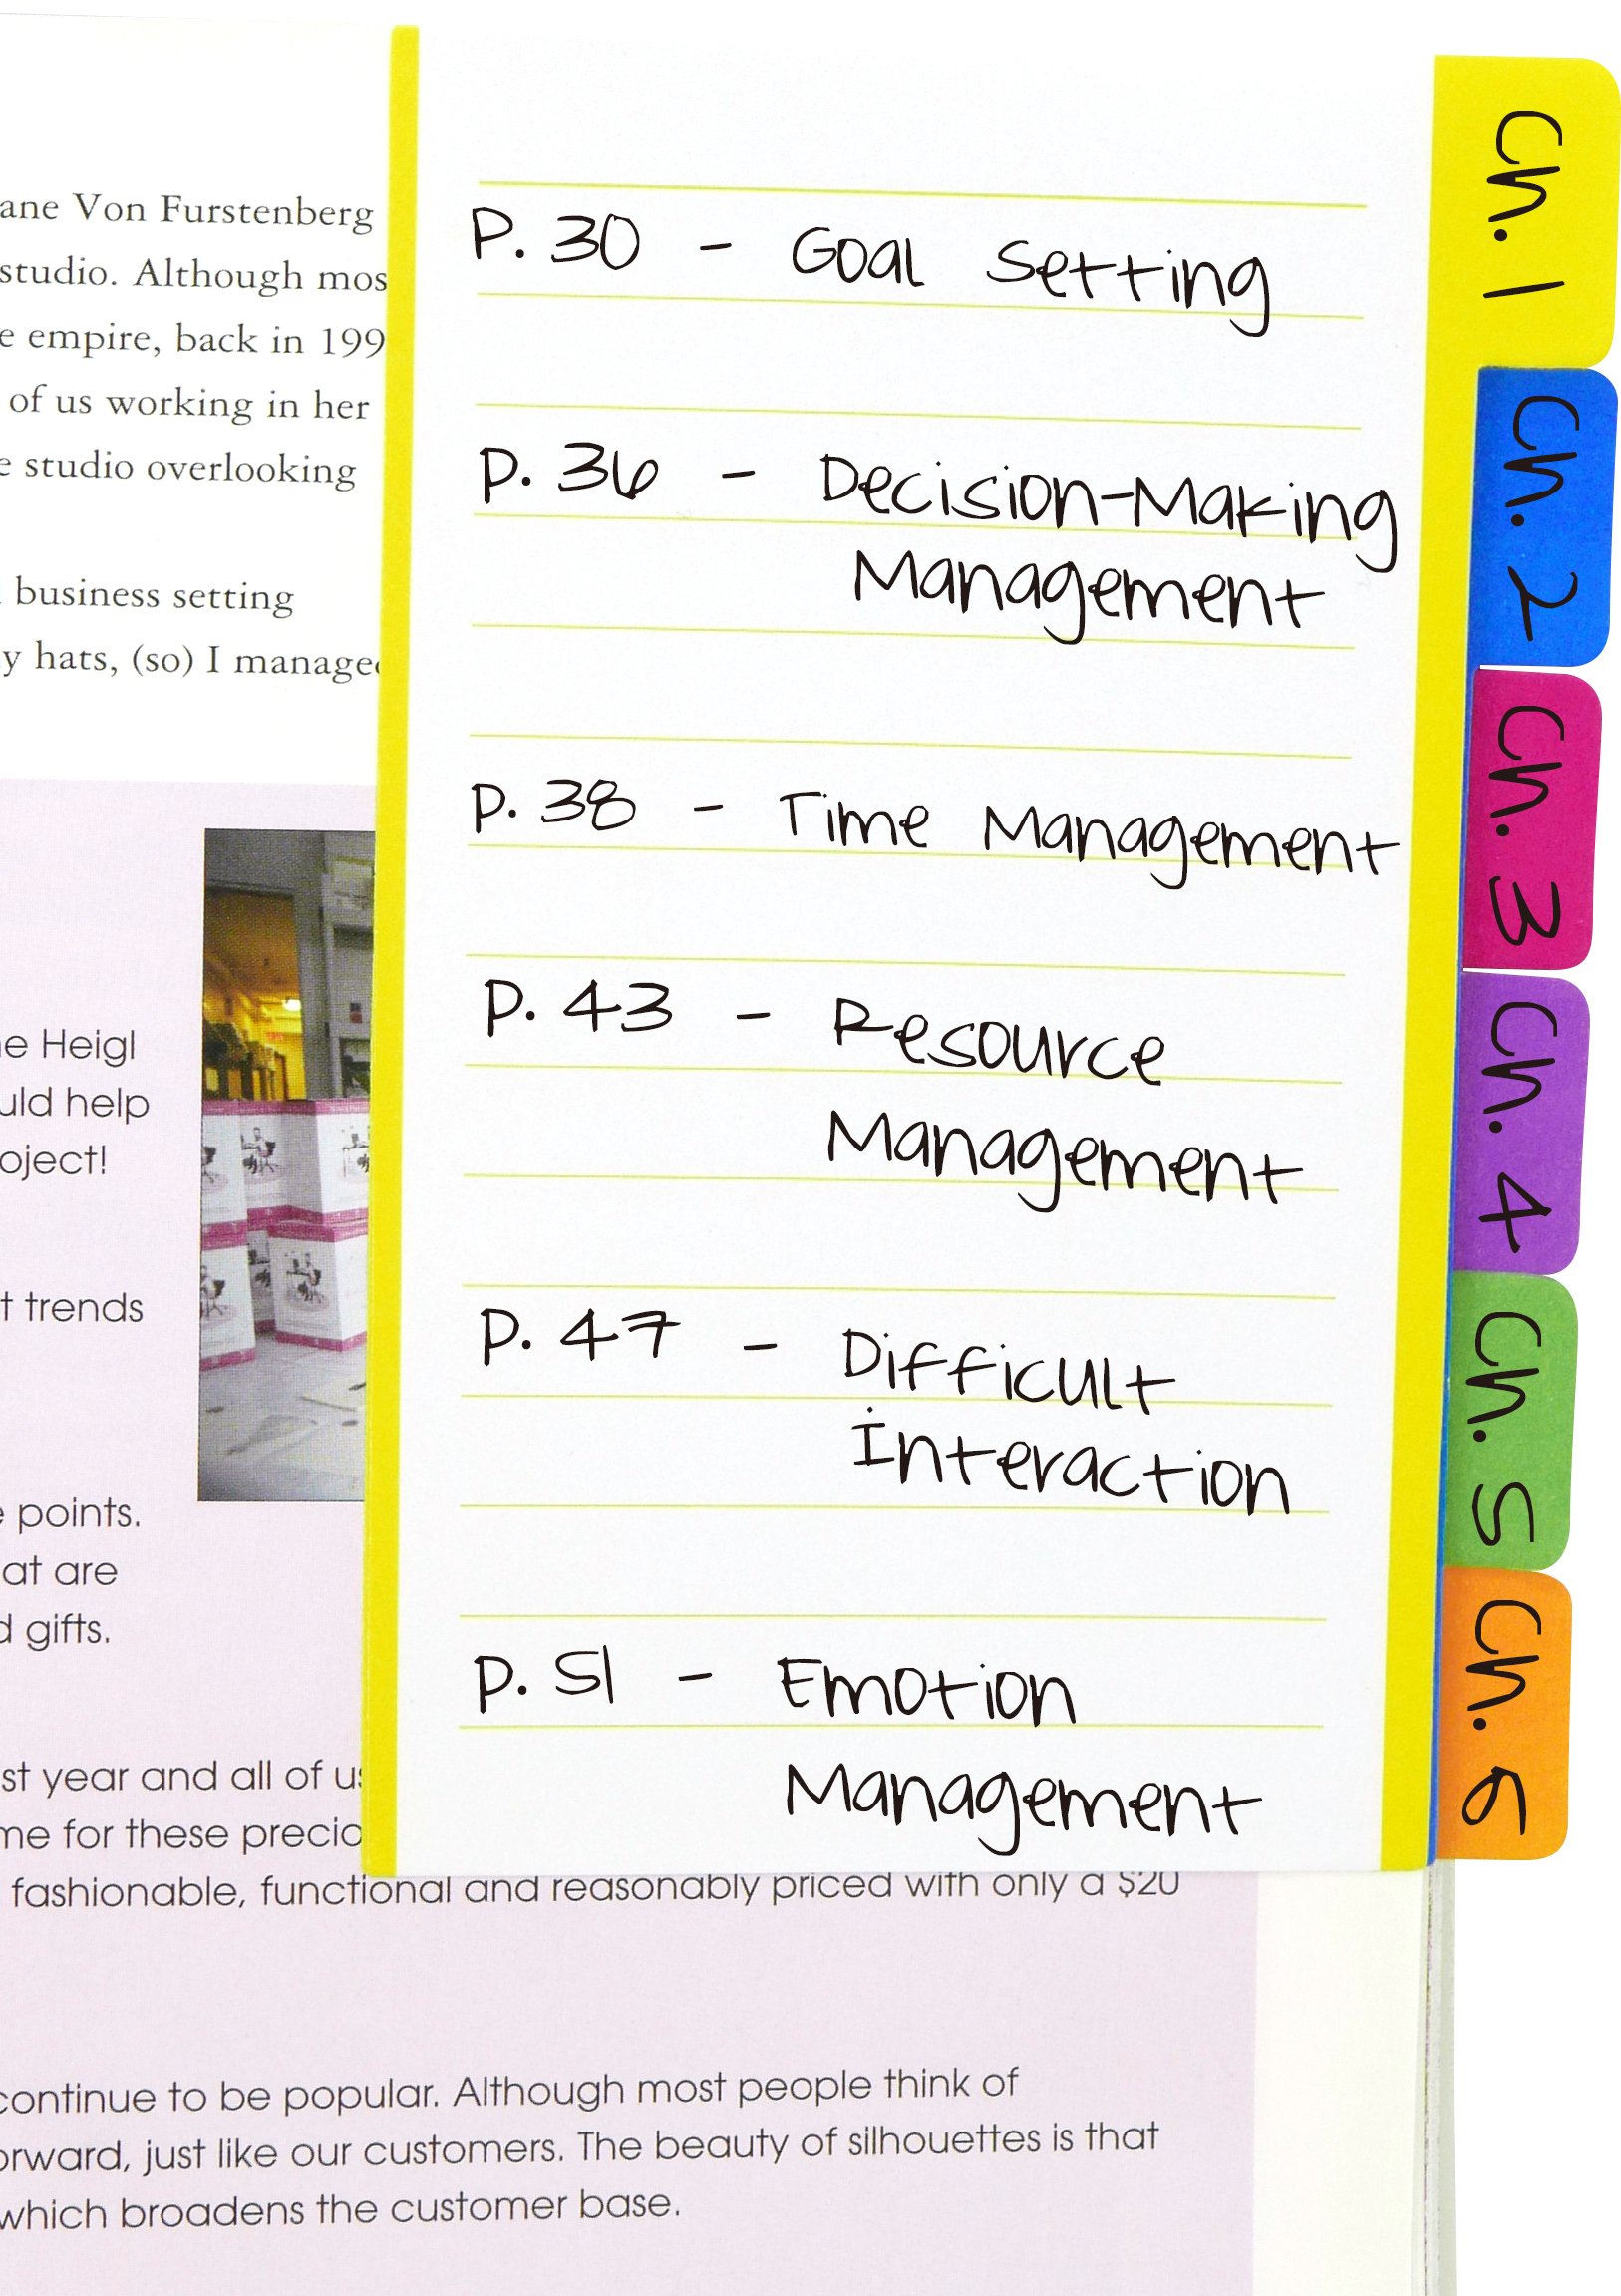 ane Von Furstenberg
studio. Although mos
e empire, back in 199
of us working in her
e studio overlooking
business setting
y hats, (so) I managed
e Heigl
uld help
oject!
t trends
e points.
at are
d gifts.
st year and all of us
me for these precio
fashionable, functional and reasonably priced with only a $20
continue to be popular. Although most people think of
orward, just like our customers. The beauty of silhouettes is that
which broadens the customer base.
P. 30 - Goal Setting
P. 36 - Decision-Making
Management
P. 38 - Time Management
P. 43 - Resource
Management
P. 47 - Difficult
Interaction
P. 51 - Emotion
Management
Ch. 1
Ch. 2
Ch. 3
Ch. 4
Ch. 5
Ch. 6